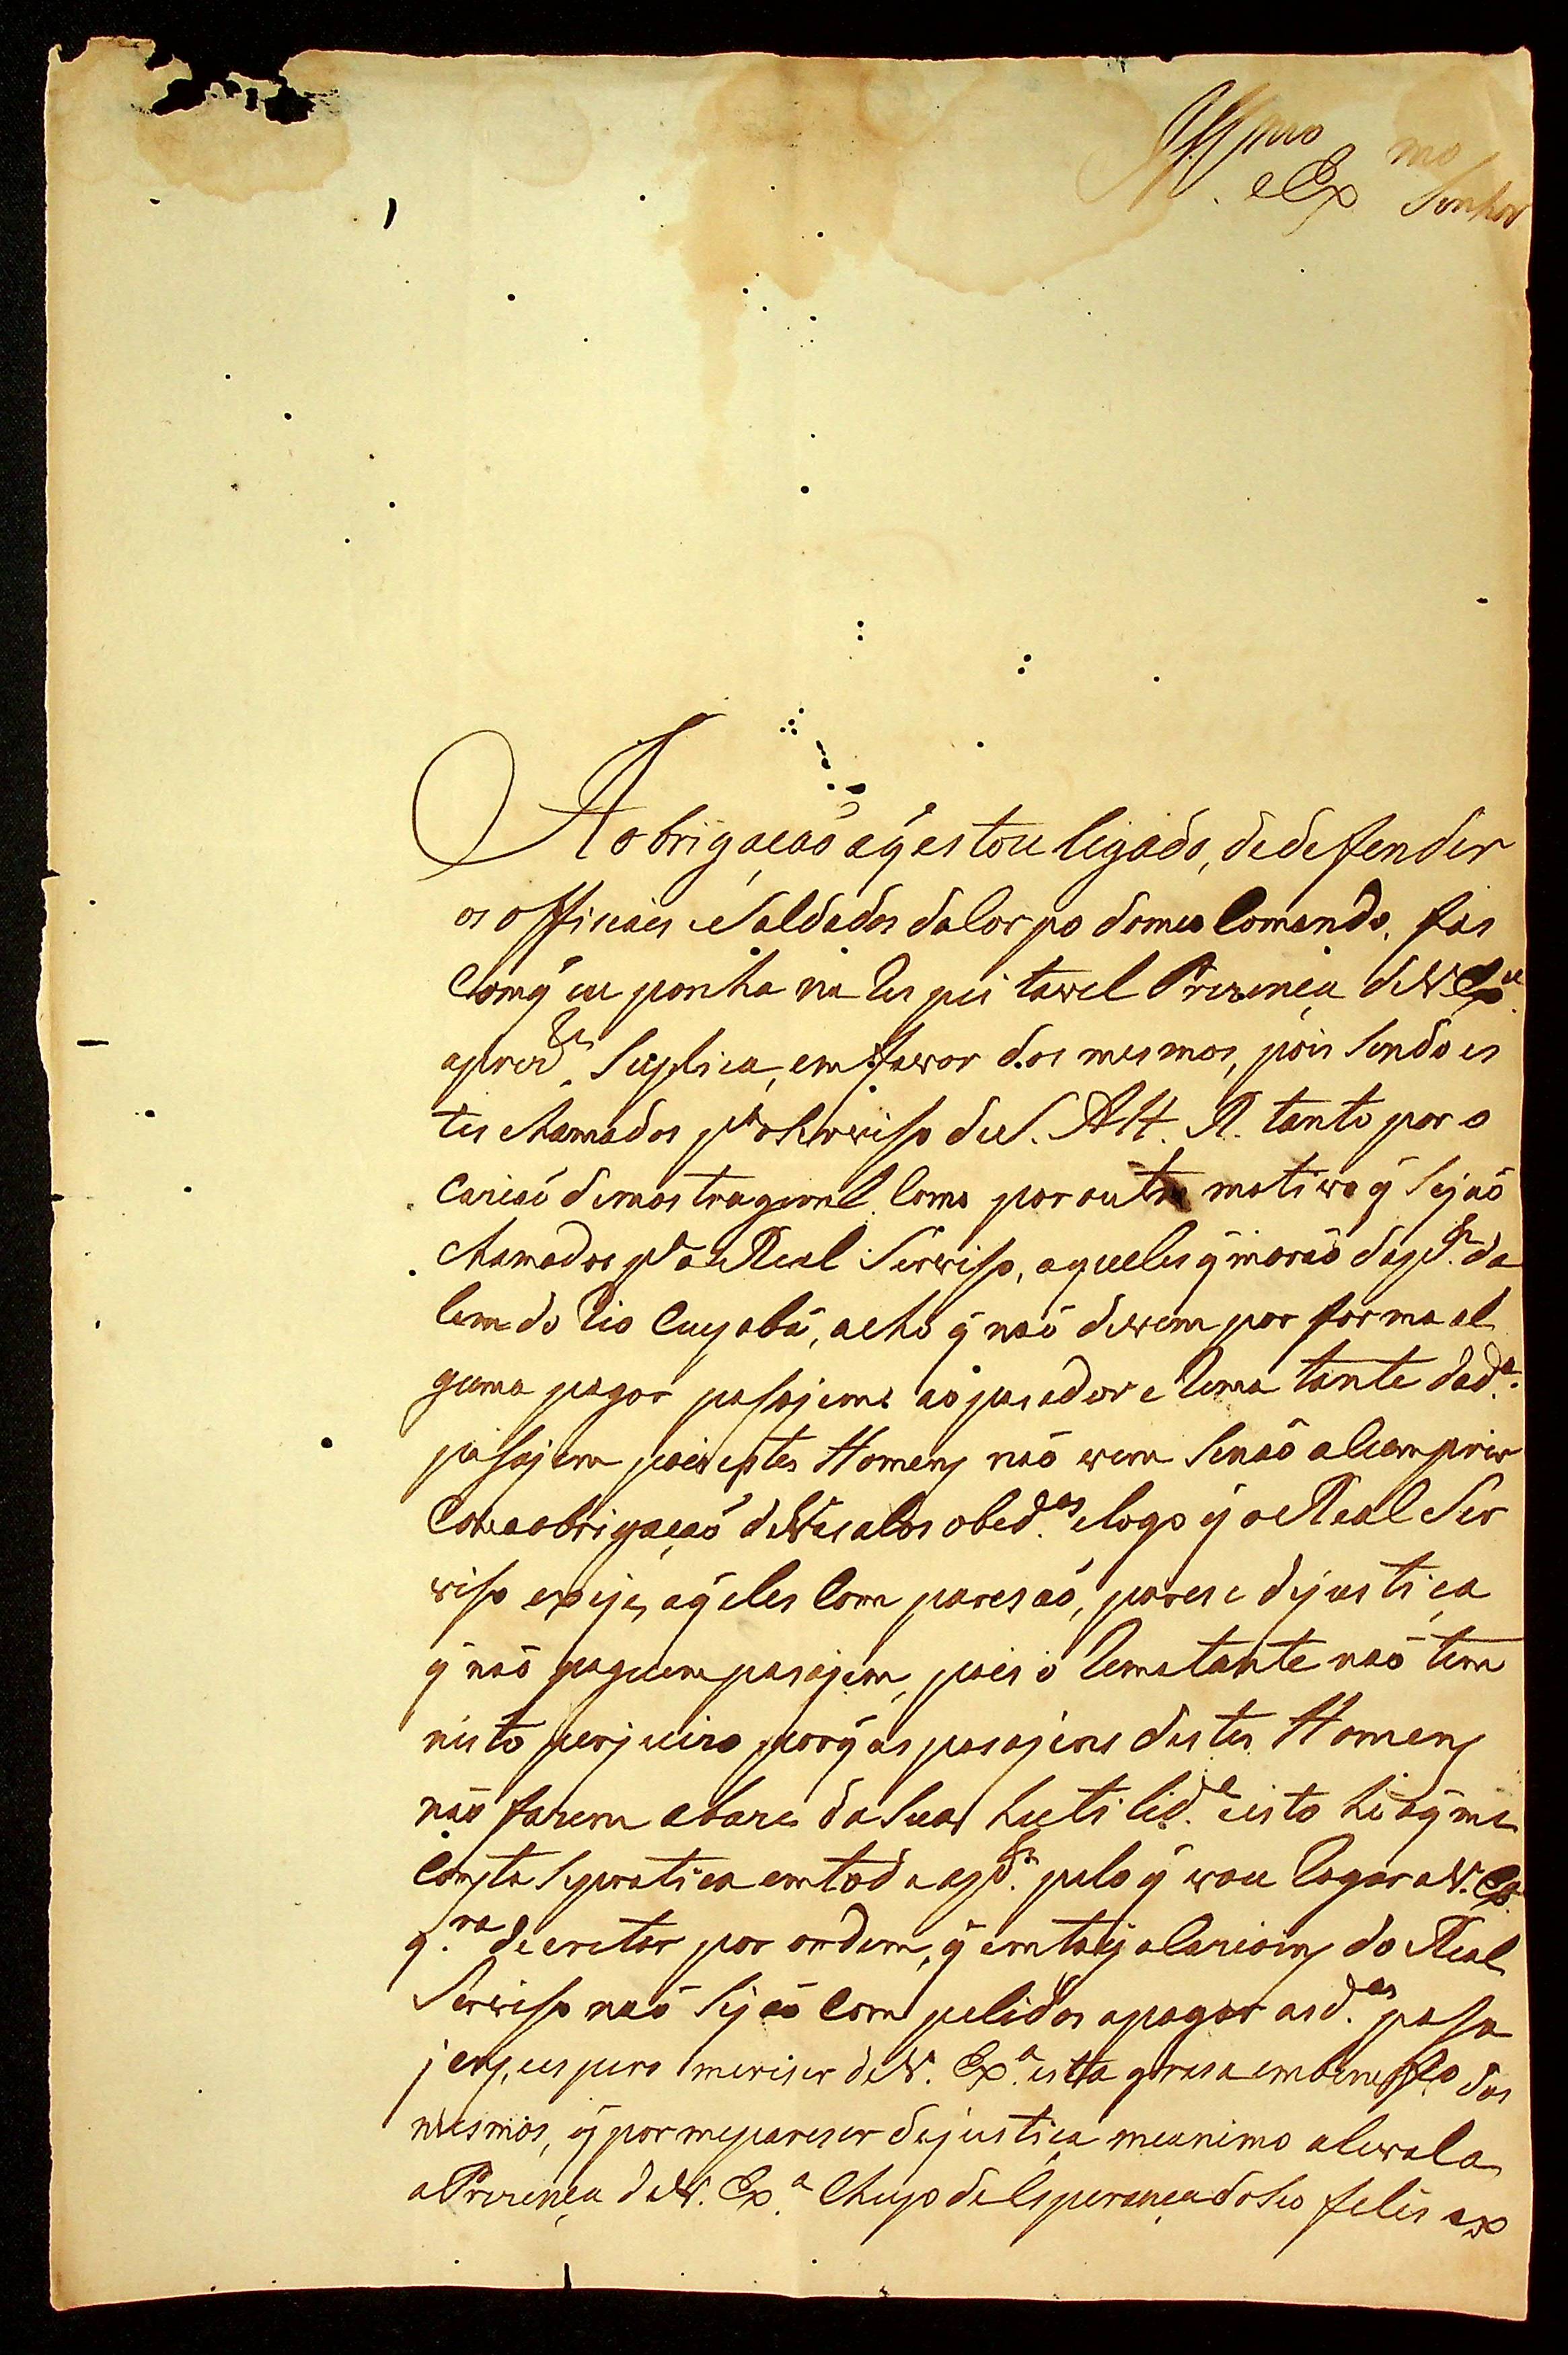 Illmo
e Exmo Senhor
A obrigaçaõ aq̃ estou ligado, dedefender
os officiaes eSaldados daCorpo domeo Comando, fas
Comq̃ eu ponha na Respeitavel Prezença deV. Exa
aprezte Suplica, emfavor dos mesmos, pois Sendo es
tes chamados pa oServiso deS. Alt. R. tanto por o
cariaõ demostrageral Como por outro motivo q̃ Sejaõ
chamados pa o Real Serviso, aqueles q̃ moraõ dapte da
lem do Rio Cuyabá, acho q̃ naõ devem por forma al
guma pagar pasajems aopasador e Rematante dada
pasajem pois estes Homens naõ vem Senaõ aCumprir
Com aobrigaçaõ deVasalos obedes elogo q̃ o Real Ser
viso exije, aq̃ eles Com paresaõ, parese dejustiça
q̃ naõ paguem pasajem, pois o Rematante naõ tem
nisto perjuizo porq̃ as pasajens destes Homens
naõ fazem abaze da Sua hutilide eisto hé oq̃ me
Consta Sepratica emtoda apte pelo q̃ vou Rogar aV. Exa
qra decretar por ordem, q̃ emtaes oCarioins do Real
Serviso naõ Sejaõ Com pelidos apagar asdas pasa
jens, eespero mereser deV. Exa esta grasa embeneficio dos
mesmos, q̃ por mepareser dejustiça meanimo alevala
aPrezença deV. Exa Cheyo deEsperança doSeo felis ex